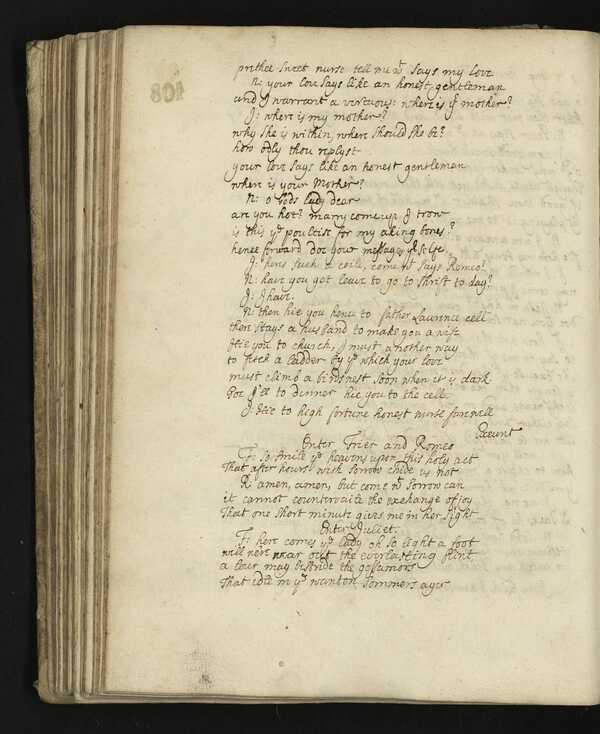 prithee sweet nurse tell me wt says my love
N: your love says like an honest gentleman
and I warrant a virtuous: where is yr mother?
J: where is my mother?
why she is within, where should she be?
how odly thou replyst
your love says like an honest gentleman
where is your Mother?
N: o Gods lady dear
are you hot? marry come up I trow
is this ye poultise for my aking bones?
hence forward doe your messages yr selfe
J: heres such a coile, come wt says Romeo?
N: have you got leave to go to shrift to day?
J: I have.
N: then hie you hence to father Laurence cell
there stays a husband to make you a wife
Hie you to church, I must another way
to fetch a ladder by ye which your love
must climb a birds nest soon when it is dark
Goe I'll to dinner hie you to the cell
J: Hie to high fortune honest nurse farewell
Exeunt
Enter Frier and Romeo
F: So smile ye heavens upon this holy act
That after hours with sorrow chide us not
R: amen, amen, but come wt sorrow can
it cannot countervaile the exchange of joy
That one short minute gives me in her sight
Enter Juliet.
F: here comes ye lady oh so light a foot
will nere wear out the everlasting flint
a lover may bistride the gosamors
That idle in ye wanton sommers ayre